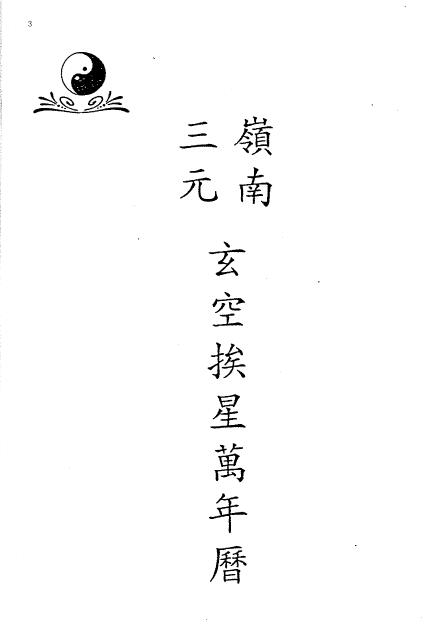 3
嶺南
三元
玄空挨星萬年曆